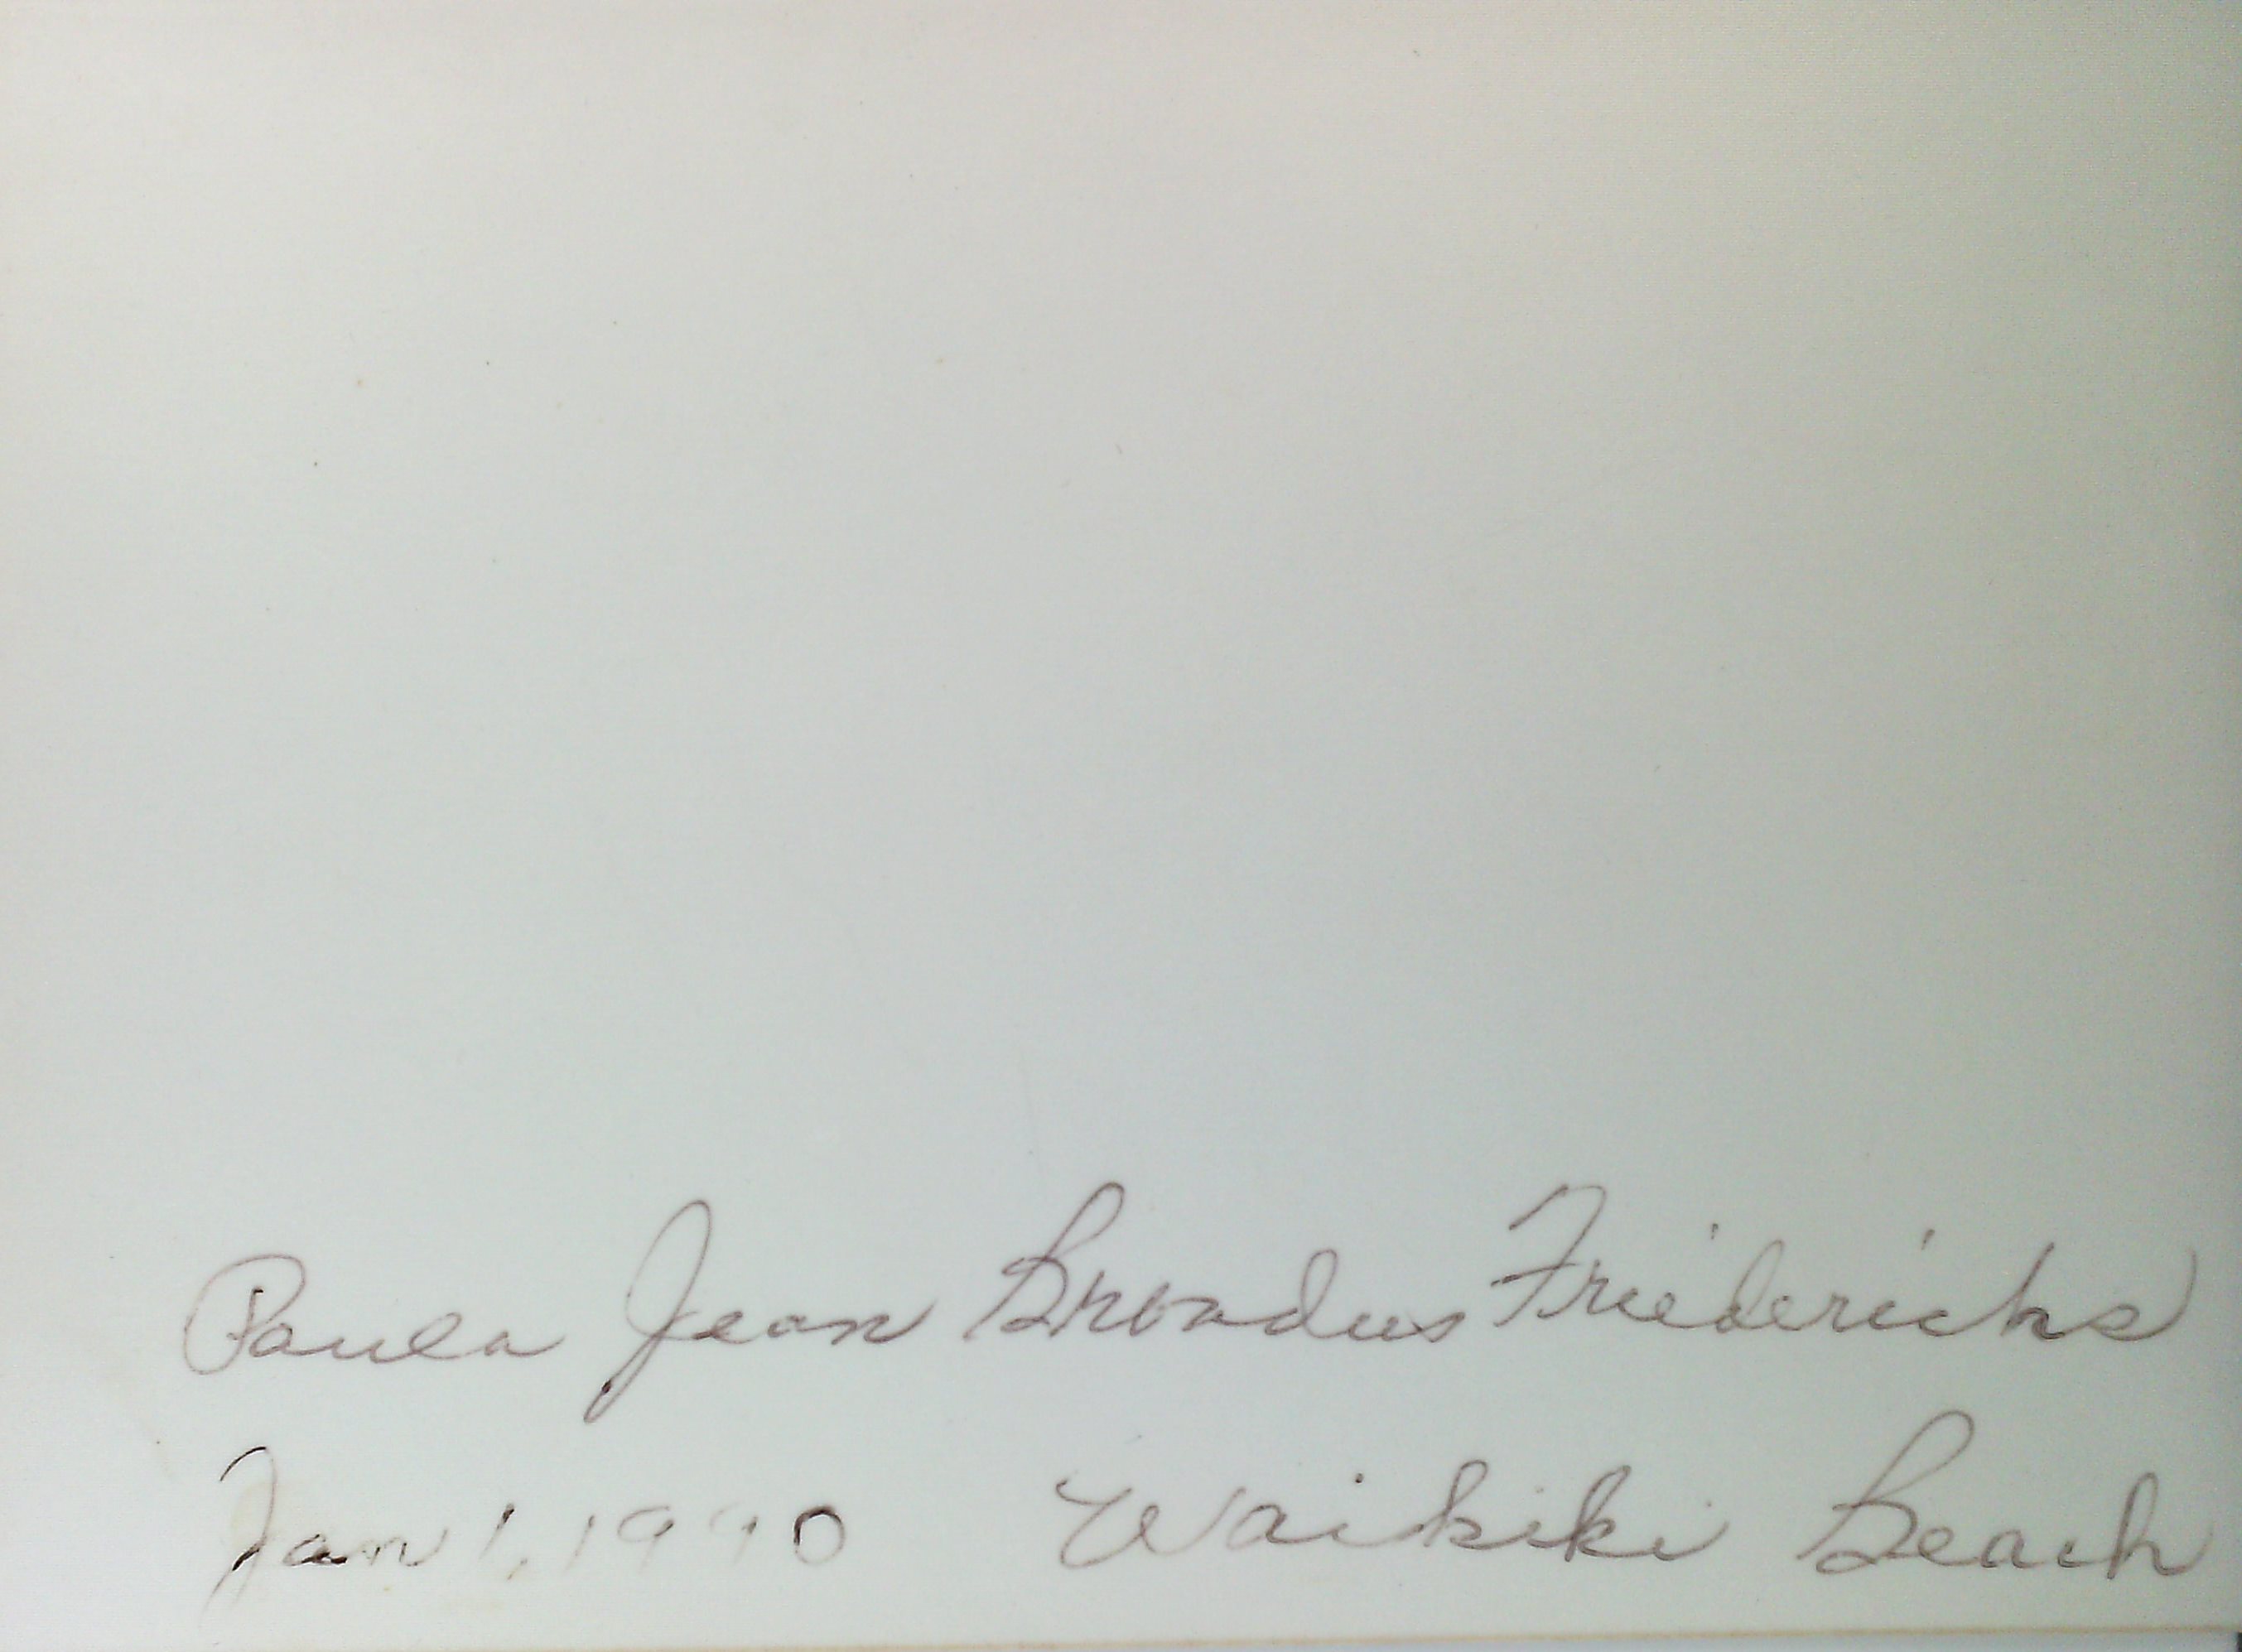 Paula Jean Broadus Friederichs
Jan 1, 1990 Waikiki Beach